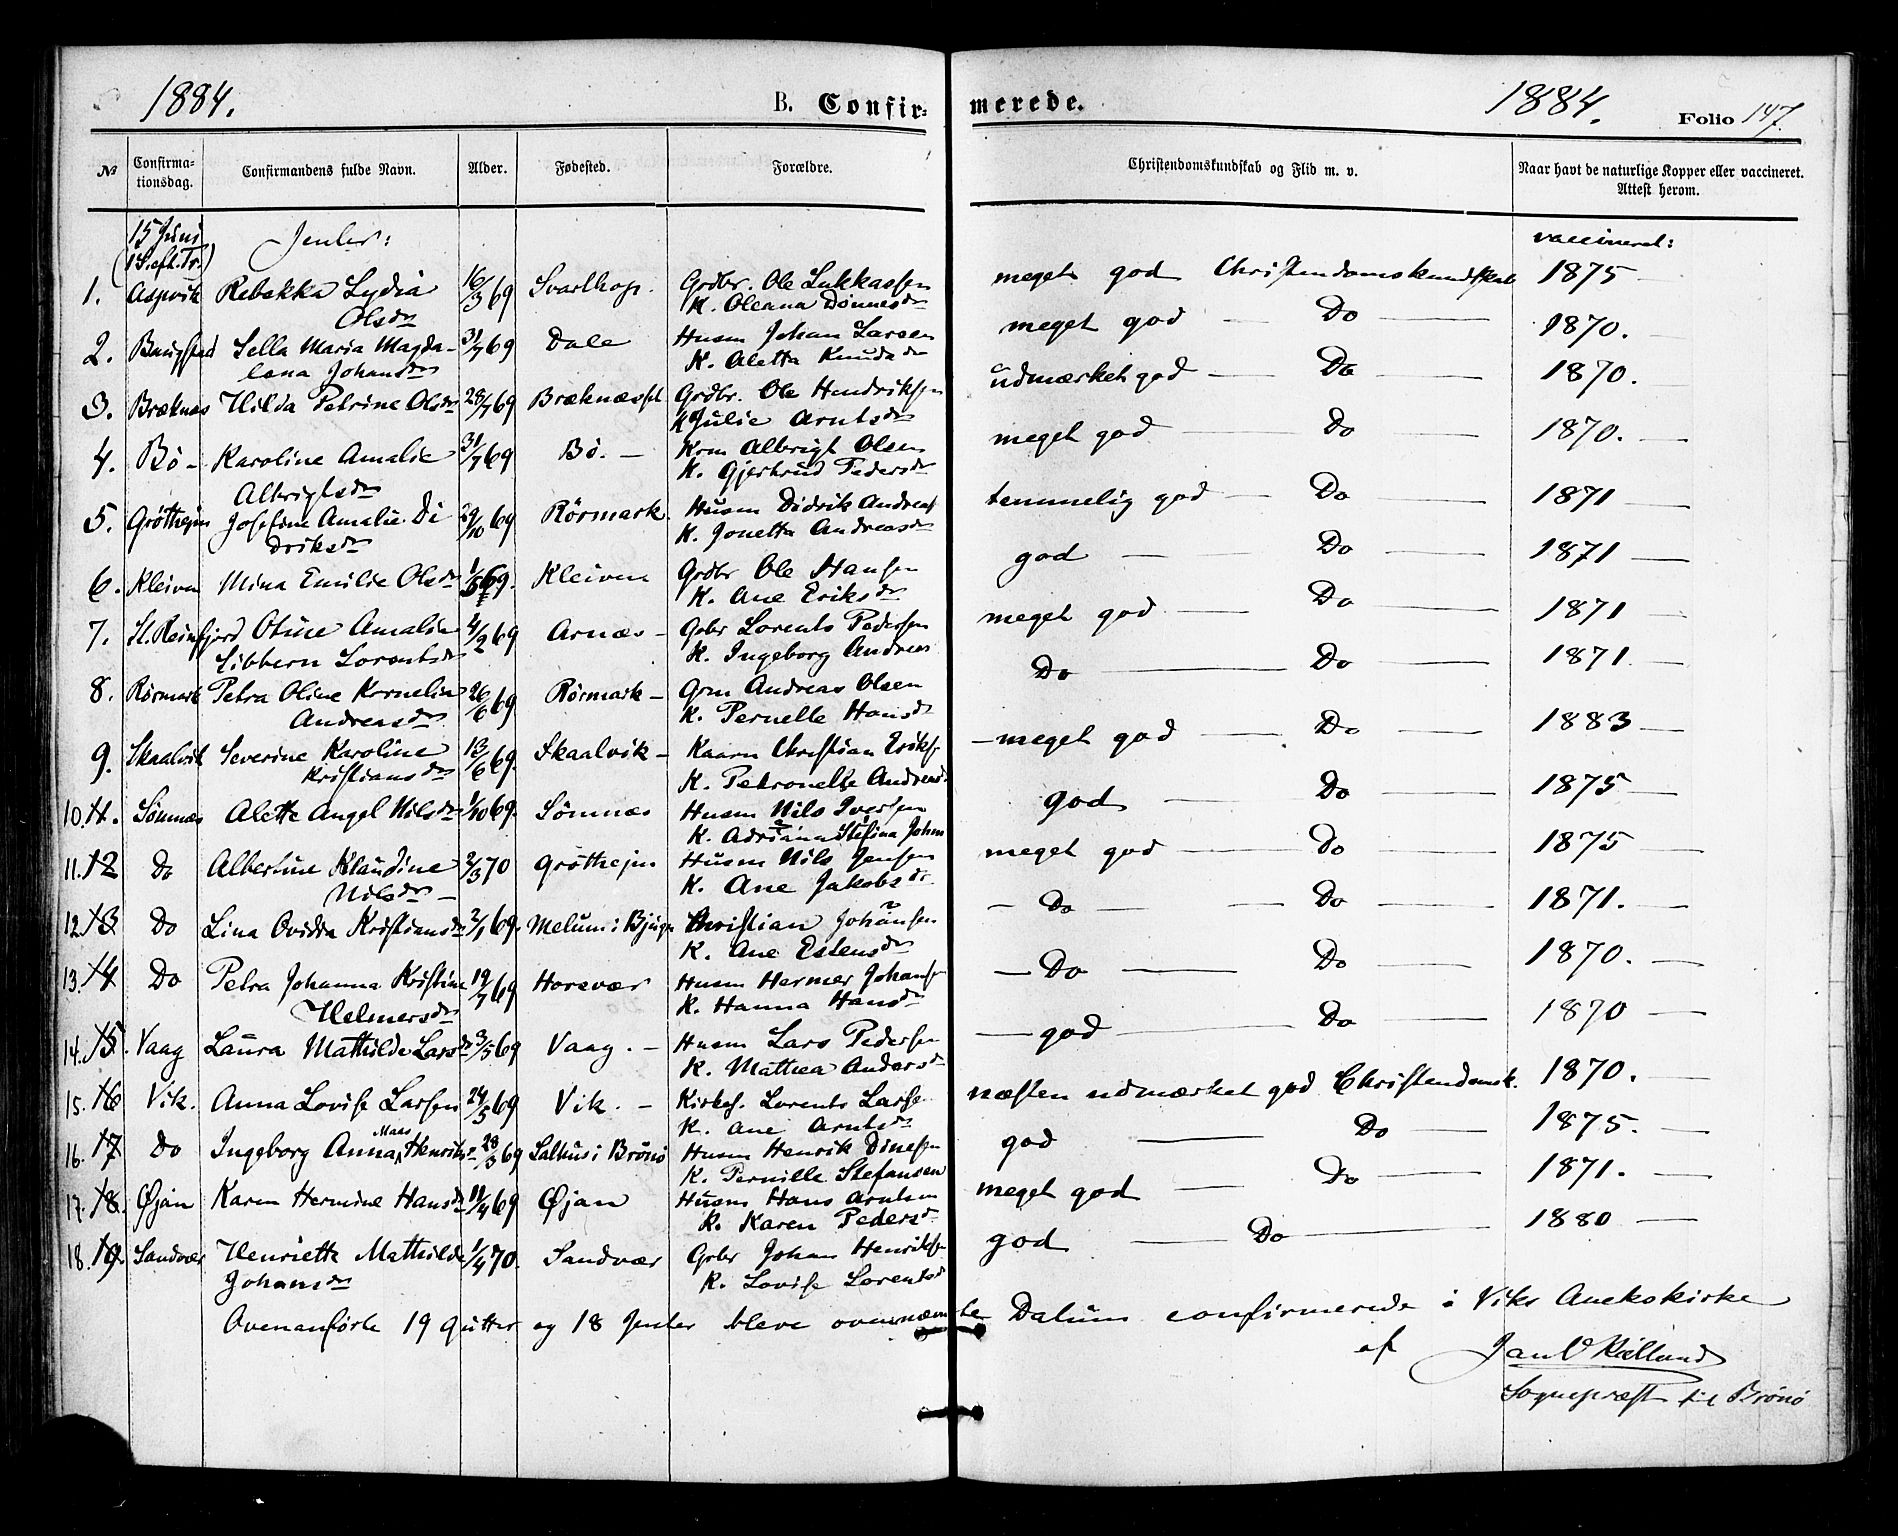 1884. B. Confirmerede. 1884. Folio 147.
№ Confirmationsdag. Confirmandens fulde Navn. Alder. Fødested. Forældre. Christendomskundskab og Flid m. v. Naar havt de naturlige Kopper eller vaccineret. Attest herom.
15 Juni Jenter: vaccineret:
(1 S. eft. Tr.)
1. Aspvik Rebekka Lydia 16/3 69 Svarthop. Grdbr. Ole Lukkassen meget god Christendomskundskab 1875 —
Olsdr K. Oleana Dønnesdr
2. Baugstad Sella Maria Magda- 31/7 69 Dale Husm Johan Larsen meget god — Do — 1870. —
lena Johansdr K. Aletta Knudsdr
3. Bræknæs Hilda Petrine Olsdr 28/7 69 Bræknæsset Grdbr. Ole Hendriksen udmærket god — Do — 1870.
K Julie Arntsdr
4. Bø - Karoline Amalie 31/7 69 Bø. — Krm Albrigt Olsen meget god — Do — 1870. —
Albrigtsdr K. Gjertrud Pedersdr
5. Grøttheim Josefine Amalie Di 29/10 69 Rørmark Husm Didrik Andreas temmelig god — Do — 1871 —
driksdr K. Jonetta Andreasdr
6. Kleiven Mina Emilie Olsdr 1/5 69. Kleiven Grdbr Ole Hansen god — Do — 1871 —
K. Ane Eriksdr
7. St. Reinfjord Otine Amalie 4/2 69 Arnæs - Gbr Lorents Pedersen meget god — Do — 1871 —
Sibbern Lorentsdr K. Ingeborg Andreas
8. Rørmark Petra Oline Kornelia 26/6 69 Rørmark - Grm Andreas Olsen Do — Do — 1871. —
Andreasdr K. Pernelle Hansdr
9. Skaalvik Severine Karoline 13/6 69. Skaalvik - Kaarm Christian Eriks — meget god — Do — 1883 —
Kristiansdr K. Petronelle Andreasd.
10. 11. Sømnæs Alette Angel Nilsdr 1/10 69. Sømnæs Husm Nils Iversen god — Do — 1875 —
K. Adriana Stefina Johns
11. 12 Do Albertine Klaudine 2/3 70 Grøttheim Husm Nils Jensen meget god — Do — 1875 —
Nilsdr — K. Ane Jakobsdr
12. 13 Do Lina Ovidda Kristiansdr 2/1 69. Melum i Bjugn Christian Johansen — Do — — Do — 1871. —
K. Ane Estensdr
13. 14 Do Petra Johanna Kristine 19/7 69 Horsvær Husm Hermer Johans — Do — Do — 1870. —
Helmersdr K. Hanna Hansdr
14. 15. Vaag Laura Mathilde Larsdr 3/5 69 Vaag. — Husm Lars Pedersen — god — Do — 1870 —
K. Mathea Andersdr
15. 16 Vik. Anna Lovise Larsen 24/5 69 Vik. — Kirkes. Lorents Larse næsten udmærket god Christendomsk. 1870. —
K. Ane Arntsdr
16. 17 Do Ingeborg Anna Mans Henriks 28/3 69 Salhus i Brønø Husm Henrik Dinesen god — Do — 1875. —
K. Pernille Stefansen
17. 18. Øjan Karen Hermine Hansdr 11/4 69 Øjan Husm Hans Arntsen meget god — Do — 1871. —
K. Karen Pedersdr
18. 19. Sandvær Henriette Mathilde 1/4 70. Sandvær Gbr Johan Henriksen god — Do — 1880 —
Johansdr K. Lovise Lorentsd
Ovenanførte 19 Gutter og 18 Jenter bleve ovennævnte Datum confirmerede i Viks Anekskirke
af Jan V Kielland
Sognepræst til Brønø